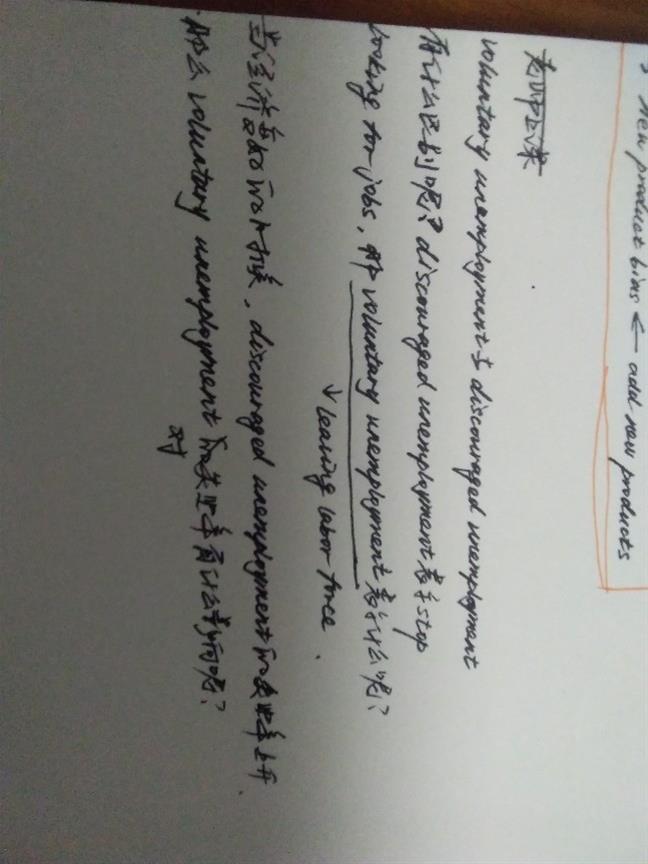 New product bias ← add new products
老师上课
voluntary unemployment 与 discouraged unemployment
有什么区别呢? discouraged unemployment 表示 stop
looking for jobs, 那 voluntary unemployment 表示什么呢?
↓ leaving labor force.
discouraged unemployment 失业率上升.
那么 voluntary unemployment 对失业率有什么影响呢?